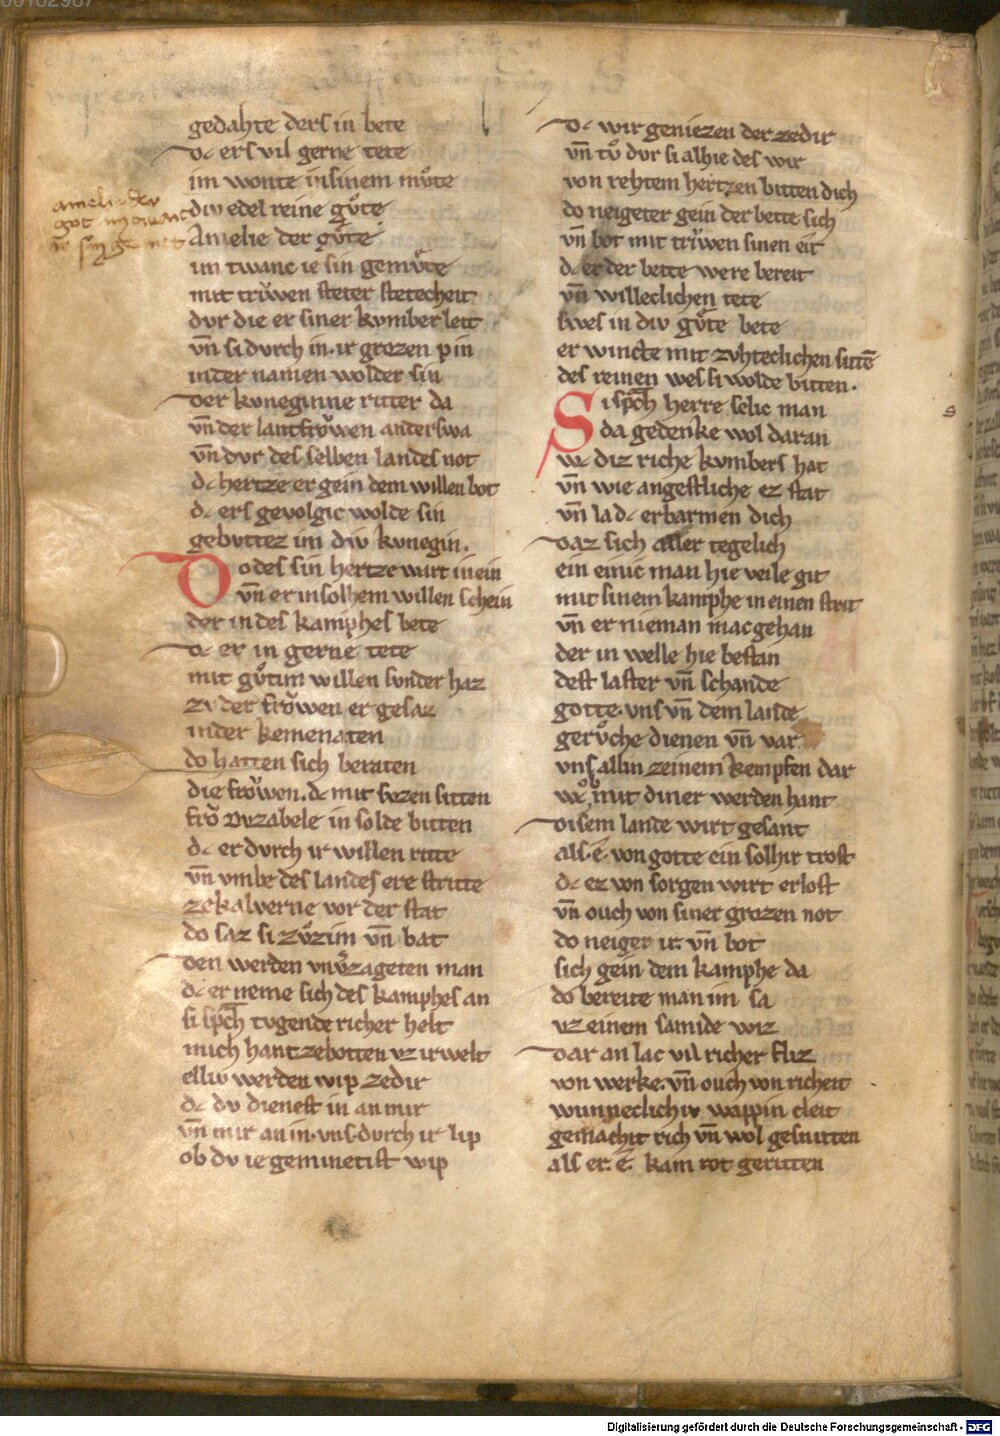 gedahte ders in bete
dc ers vil gerne tete
im wonte in sinem můte
div edel reine gůte
Amelie der gůte
im twanc ie sin gemůte
mit trůwen steter stetecheit
dvr die er siner kvmber leit
vn̄ si dvrch in ir grozen pin
in der namen wolder sin
der kvneginne ritter da
vn̄ der lantfrŏwen anderswa
vn̄ dvr des selben landes not
dc hertze er gein dem willen bot
dc ers gevolgic wolde sin
gebvttez im div kvnegin.
Do des sin hertze wart in ein
vn̄ er in solhem willen schein
der in des kamphes bete
dc er in gerne tete
mit gůtim willen svnder haz
zv der frŏwen er gesaz
in der kemenaten
do hatten sich beraten
die frŏwen. dc mit svzen sitten
frŏ Dvzabele in solde bitten
dc er dvrch ir willen ritte
vn̄ vmbe des landes ere stritte
ze kalverne vor der stat
do saz si zůzim vn̄ bat
den werden vnv̾zageten man
dc er neme sich des kamphes an
si sp̄ch tvgende richer helt
mich hant zebotten vz irwelt
elliv werden wip zedir
dc dv dienest in an mir
vn̄ mir an in. vns. dvrch ir lip
ob dv ie geminetist wip
dc wir geniezen der zedir
vn̄ tů dvr si alhie des wir
von rehtem hertzen bitten dich
do neigeter gein der bette sich
vn̄ bot mit trůwen sinen eit
dc er der bette were bereit
vn̄ willeclichen tete
swes in div gůte bete
er wincte mit zvhteclichen sittē
des reinen wes si wolde bitten.
Si sp̄ch herre selic man
da gedenke wol daran
wc diz riche kvmbers hat
vn̄ wie angestliche ez stat
vn̄ la dc erbarmen dich
daz sich aller tegelich
ein einic man hie veile git
mit sinem kamphe in einen strit
vn̄ er nieman mac gehan
der in welle hie bestan
dest laster vn̄ schande
gotte. vns vn̄ dem lande
gerůche dienen vn̄ var
vns allin zeinem kempfen dar
mit diner werden hant
disem lande wirt gesant
als. e. von gotte ein solhir trost
dc ez von sorgen wirt erlost
vn̄ ouch von siner grozen not
do neiger ir. vn̄ bot
sich gein dem kamphe da
do bereite man im sa
vz einem samide wiz
dar an lac vil richer fliz
von werke. vn̄ ouch von richeit
wunneclichiv wappin cleit
gemachit rich vn̄ wol gesnitten
als er. e. kam rot geritten
Digitalisierung gefördert durch die Deutsche Forschungsgemeinschaft - DFG